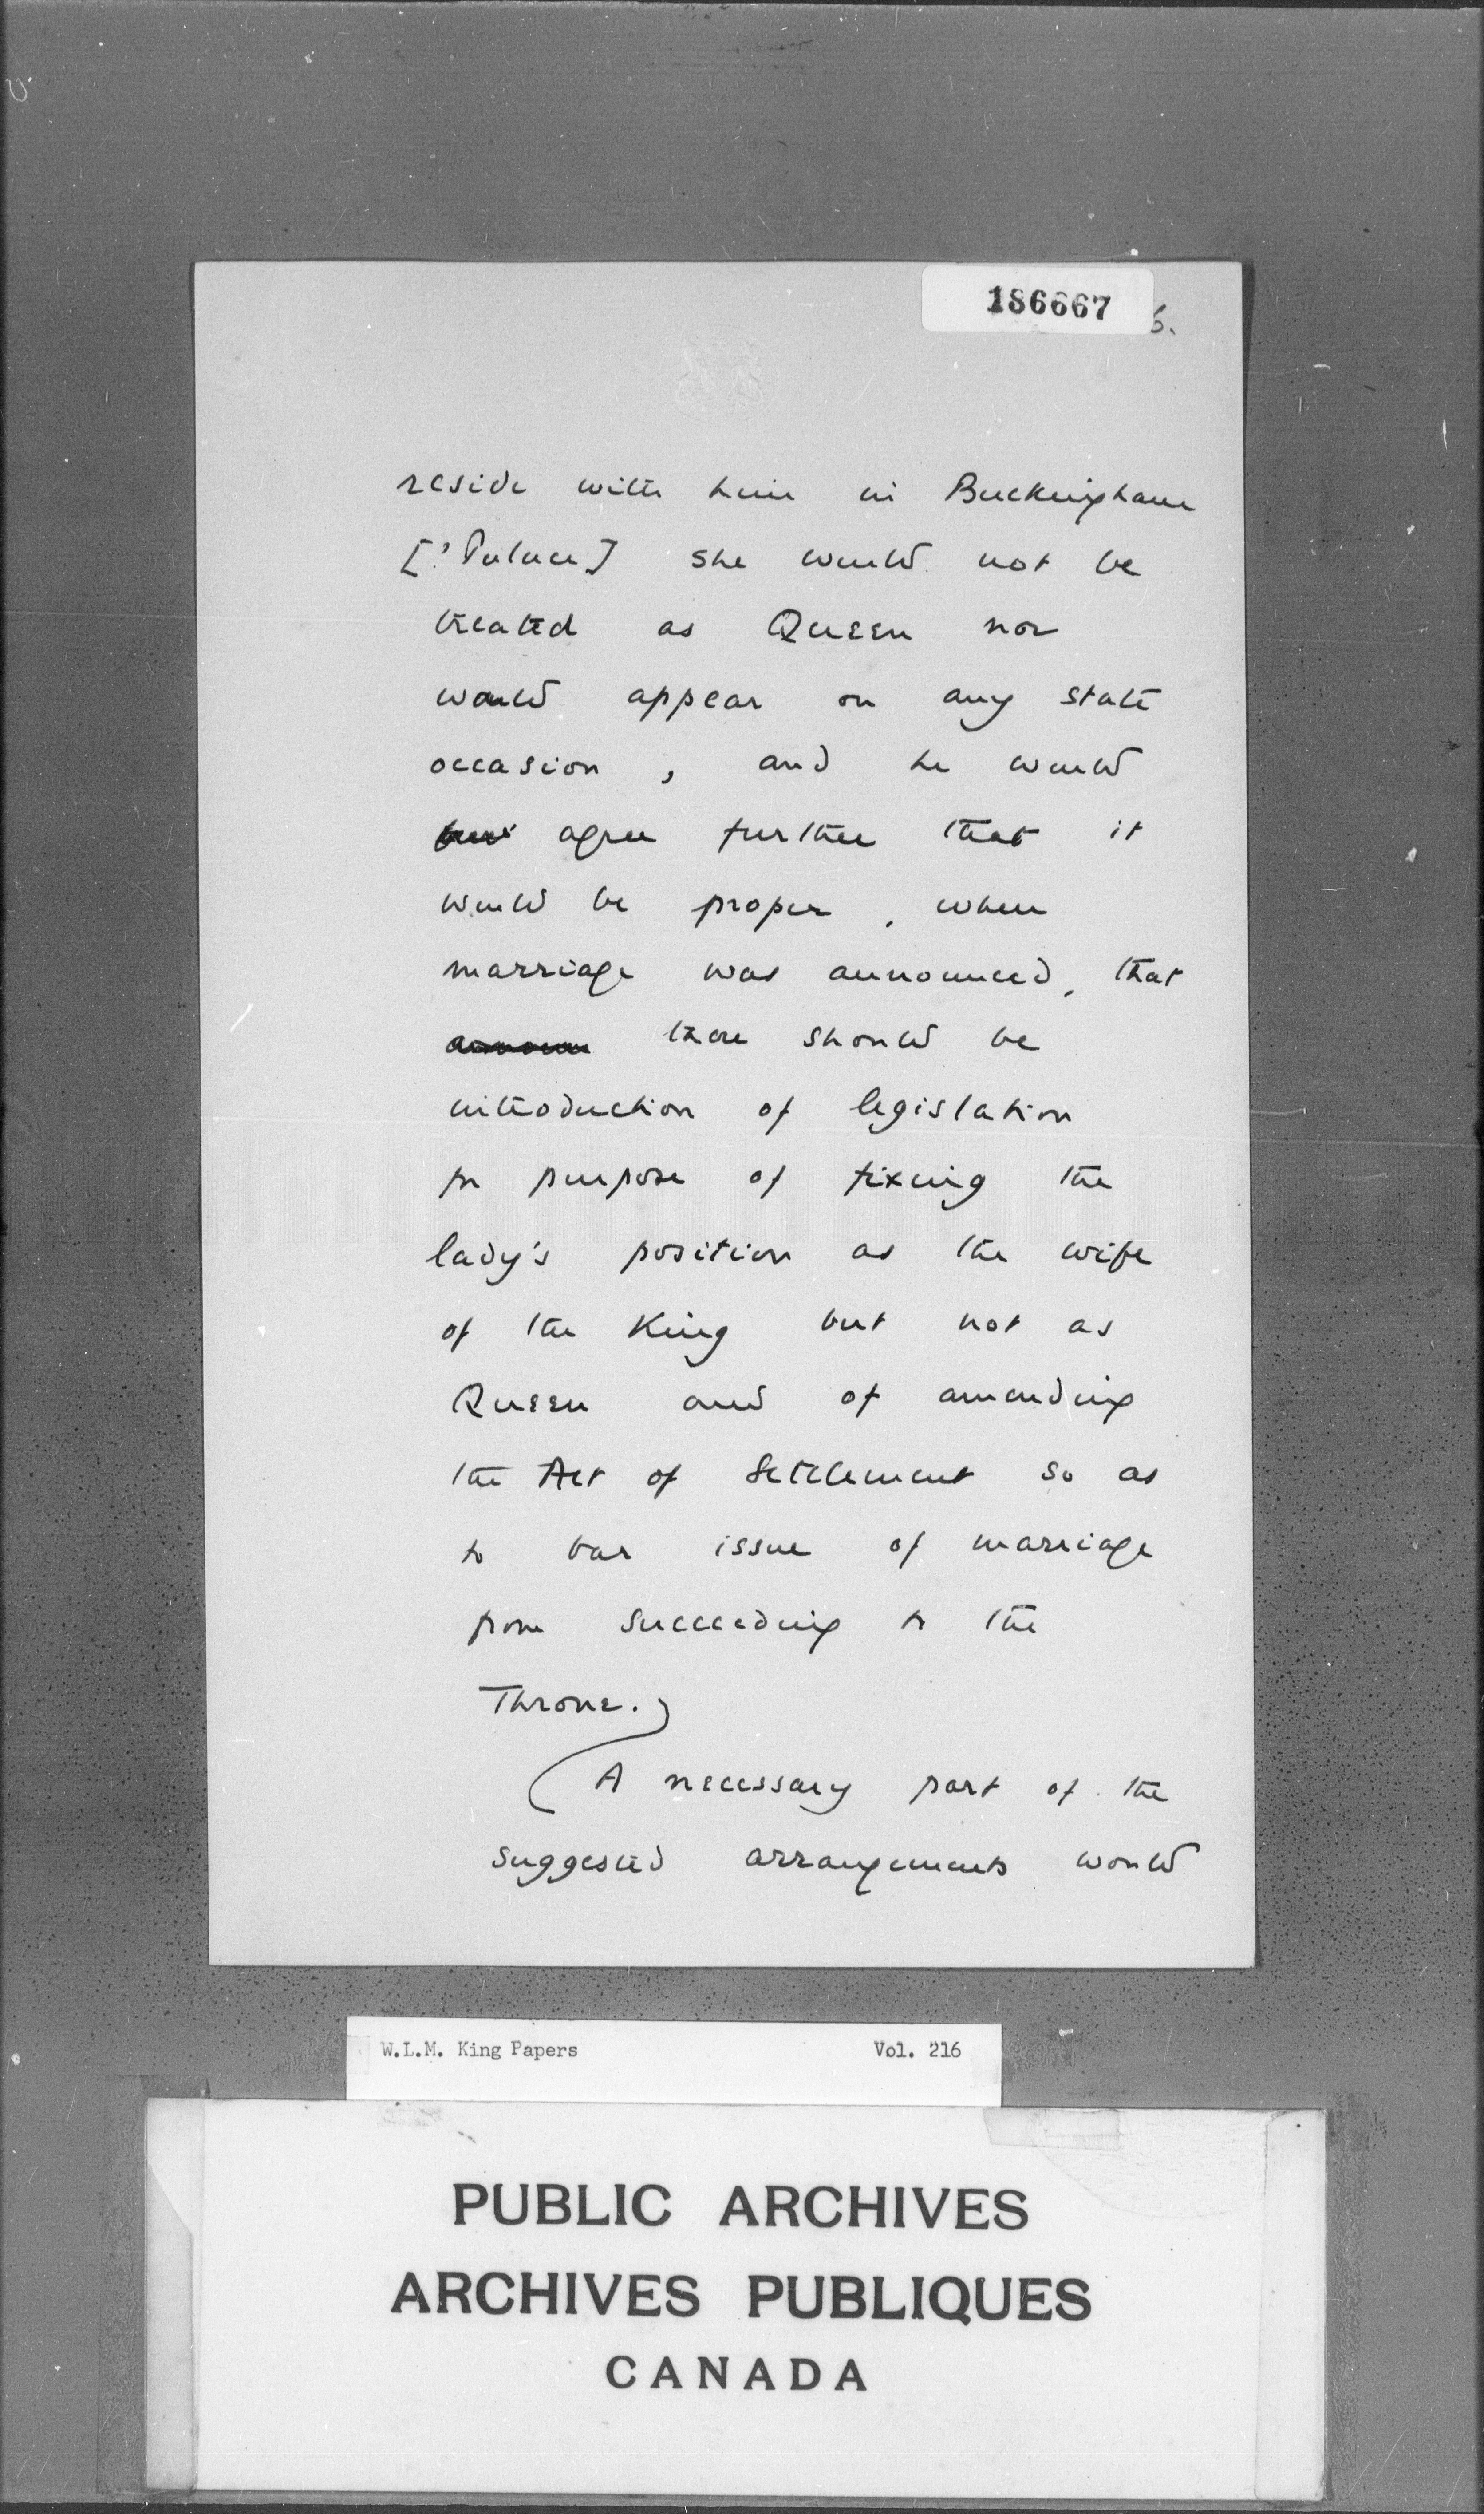 186667 6.
reside with him in Buckingham
[? Palace] she would not be
treated as Queen nor
would appear on any state
occasion, and he would
agree further that it
would be proper, when
marriage was announced, that
announ there should be
introduction of legislation
for purpose of fixing the
lady's position as the wife
of the King but not as
Queen and of amending
the Act of Settlement so as
to bar issue of marriage
from succeeding to the
Throne.)
(A necessary part of the
suggested arrangements would
W.L.M. King Papers Vol. 216
PUBLIC ARCHIVES
ARCHIVES PUBLIQUES
CANADA